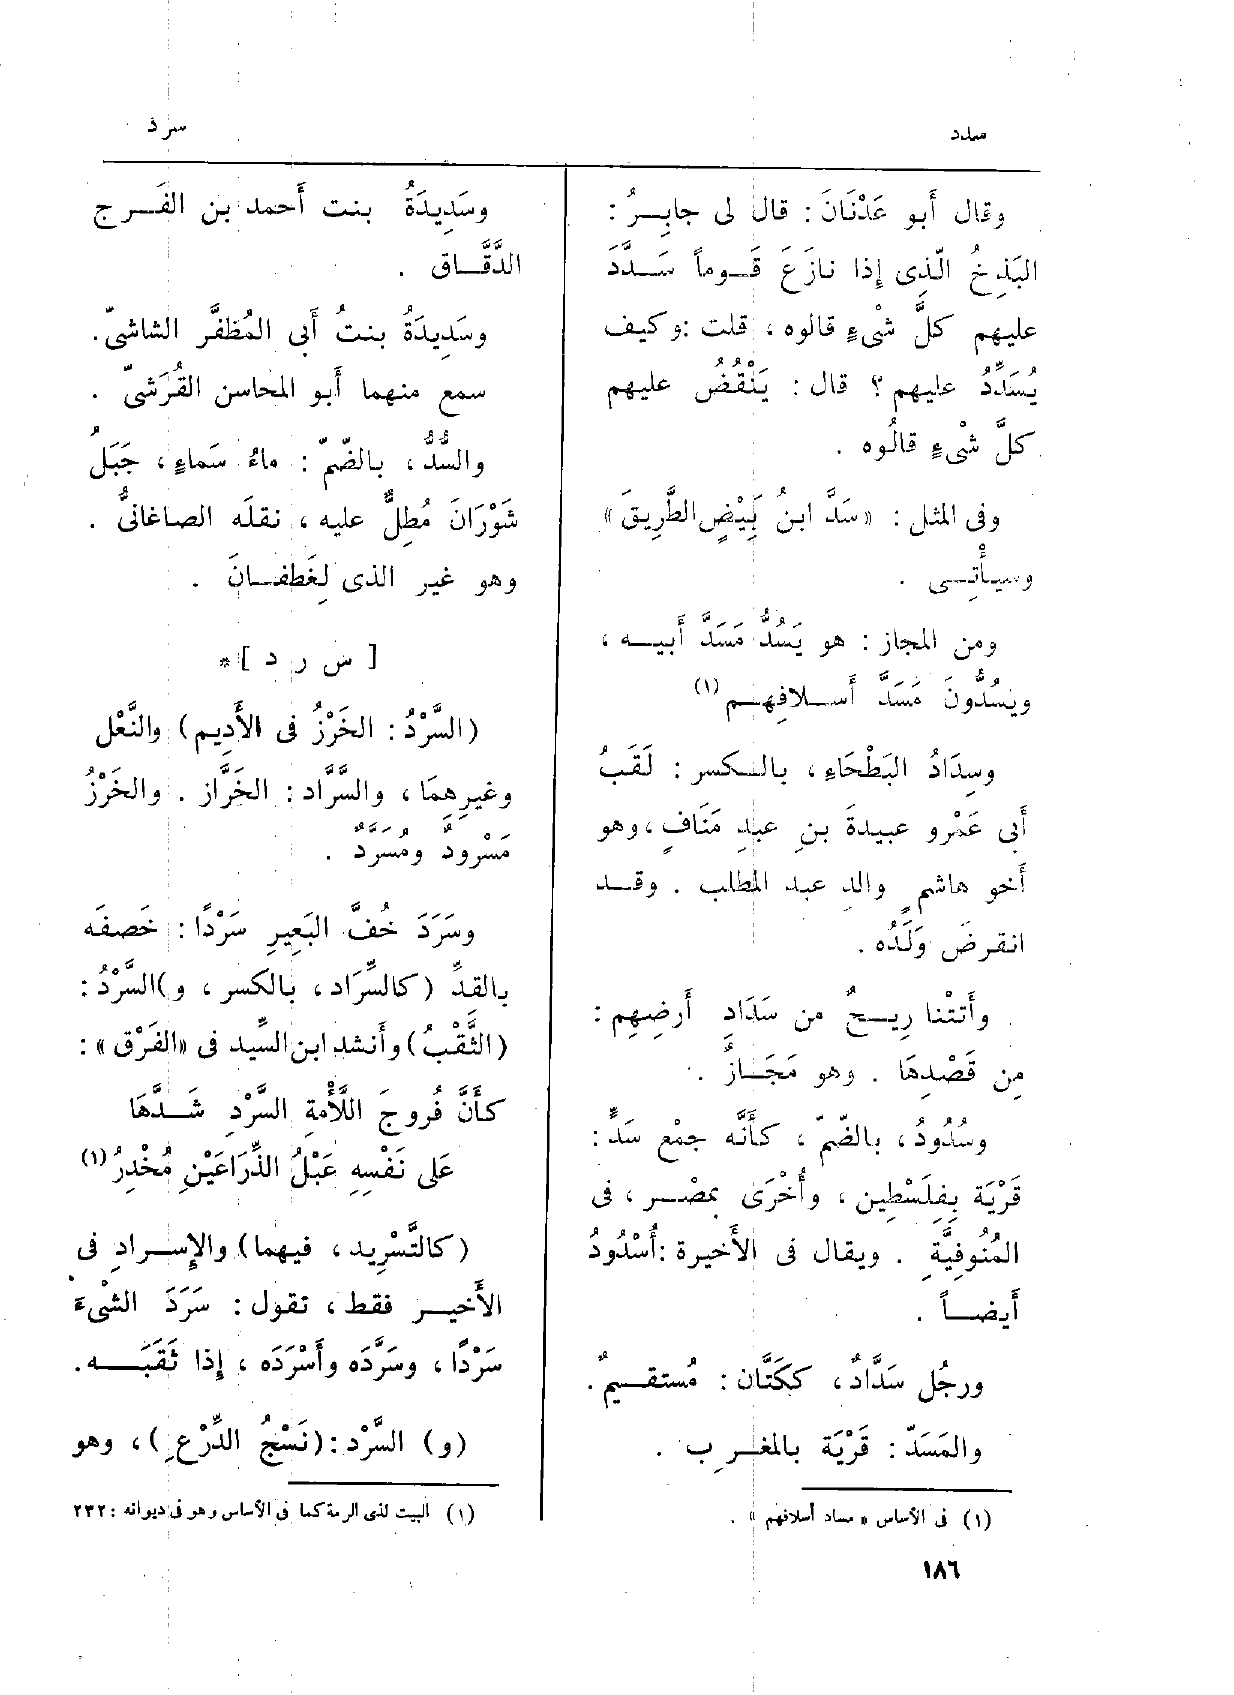 سدد
سرد
وقال أَبو عَدْنَانَ : قال لى جابِـرُ :
البَذِخُ الَّذِى إِذا نازَعَ قَـوماً سَـدَّدَ
عليهم كلَّ شْىءٍ قالوه ، قلت :وكيف
يُسَدِّدُ عليهم ؟ قال : يَنْقُضُ عليهم
كلَّ شْىءٍ قالُوه .
وفى المثل : «سَدَّ ابنُ بَيْضٍ الطَّرِيقَ»
وسيأْتِـى .
ومن المجاز : هو يَسُدُّ مَسَدَّ أَبيـه ،
ويَسُدُّونَ مَسَدَّ أَسـلافِهـم (١)
وسِدَادُ البَطْحَاءِ ، بالـكسر : لَقَبُ
أَبى عَمْرو عبيدةَ بنِ عبدِ مَنَافٍ ،وهو
أَخو هاشمٍ والدِ عبد المطلب . وقـد
انقرضَ وَلَدُه .
وأَتتْنا رِيـحٌ من سَدَادِ أَرضِهِم :
مِن قَصْدِهَا . وهو مَجَـازٌ .
وسُدُودُ ، بالضّمّ ، كأَنَّه جمْع سَدٍّ :
قَرْيَة بِفِلَسْطِين ، وأُخْرَى بمصْـر ، فى
المُنُوفِيَّةِ . ويقال فى الأَخيرة :أُسْدُودُ
أَيضـاً .
ورجُل سَدَّادٌ ، ككَتَّان : مُستقيـمٌ .
والمَسَدّ : قَرْيَة بالمغـربِ .
(١) فى الأساس « مساد أسلافهم » .
وسَدِيدَةُ بنت أَحمد بن الفَـرج
الدَّقَّـاق .
وسَدِيدَةُ بنتُ أَبى المُظفَّر الشاشىّ.
سمع منهما أَبو المحاسن القُرَشىّ .
والسُّدُّ ، بالضّمّ : ماءُ سَماءٍ ، جَبَلُ
شَوْرَانَ مُطِلٌّ عليه ، نقلَه الصاغانىُّ .
وهو غير الذى لِغَطفـانَ .
[ س ر د ] *
(السَّرْدُ : الخَرْزُ فى الأَدِيم) والنَّعْل
وغيرِهمَا ، والسَّرَّاد : الخَرَّاز . والخَرْزُ
مَسْرودٌ ومُسَرَّدٌ .
وسَرَدَ خُفَّ البَعِيرِ سَرْدًا : خَصفَه
بالقدِّ (كالسِّرَاد ، بالكسر ، و)السَّرْدُ :
(الثَّقْبُ) وأَنشد ابن السِّيد فى «الفَرْق» :
كأَنَّ فُروجَ اللَّأْمةِ السَّرْدِ شَـدَّهَا
عَلى نَفْسِهِ عَبْلُ الذِّرَاعَيْنِ مُخْدِرُ (١)
(كالتَّسْرِيد ، فيهما) والإِسـرادِ فى
الأَخيـر فقط ، تقول : سَرَدَ الشْىءَ
سَرْدًا ، وسَرَّدَه وأَسْرَدَه ، إِذا ثَقَبَـه.
(و) السَّرْد : (نَسْجُ الدِّرْعِ) ، وهو
(١) البيت لذى الرمة كما فى الأساس وهو فى ديوانه : ٢٣٢
١٨٦